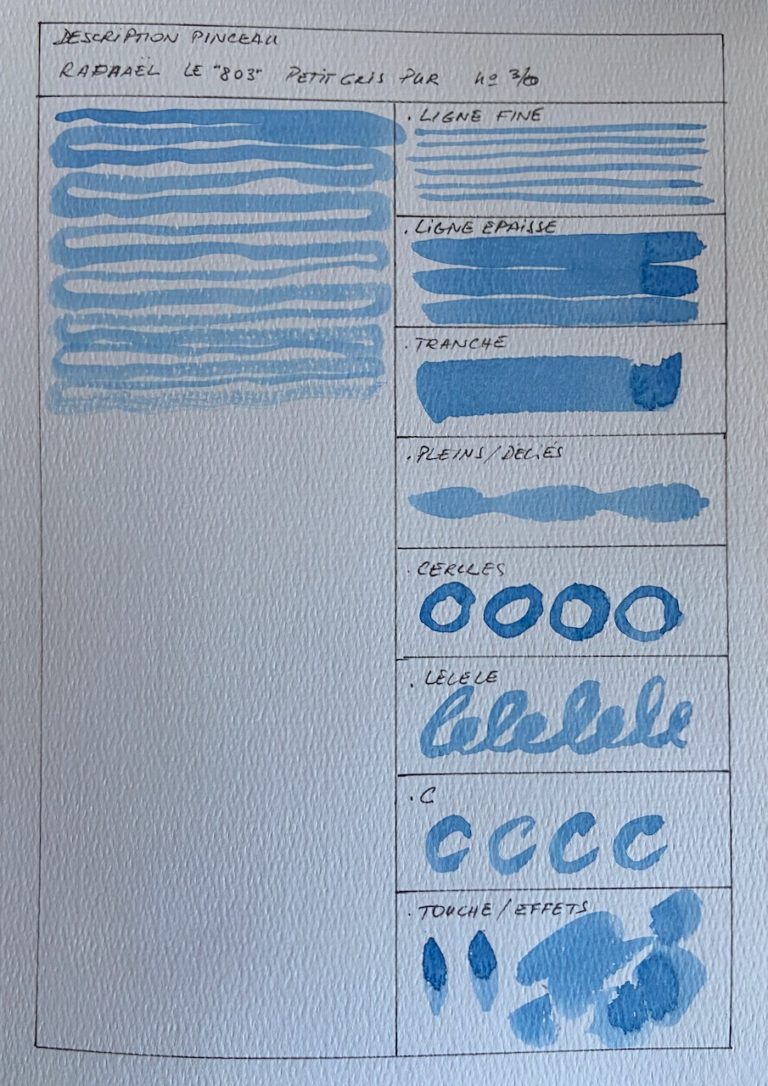 DESCRIPTION PINCEAU
RAPHAËL LE "803" PETIT GRIS PUR No 3/0
. LIGNE FINE
. LIGNE EPAISSE
. TRANCHE
. PLEINS/DÉLIÉS
. CERCLES
. LELELE
. C
. TOUCHE/EFFETS